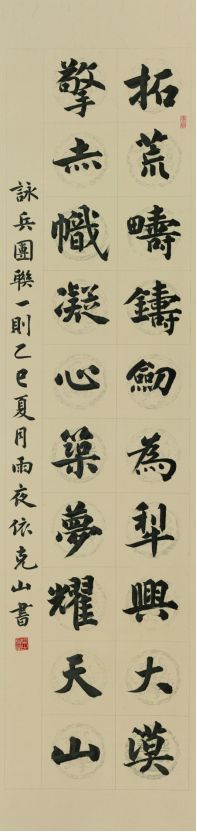 拓荒疇鑄劒為犁興大漠
擎赤幟凝心築夢耀天山
詠兵團聯一則乙巳夏月雨夜依克山書